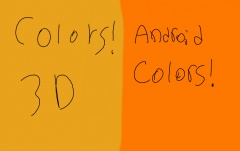 Colors!
3D
Android
Colors!